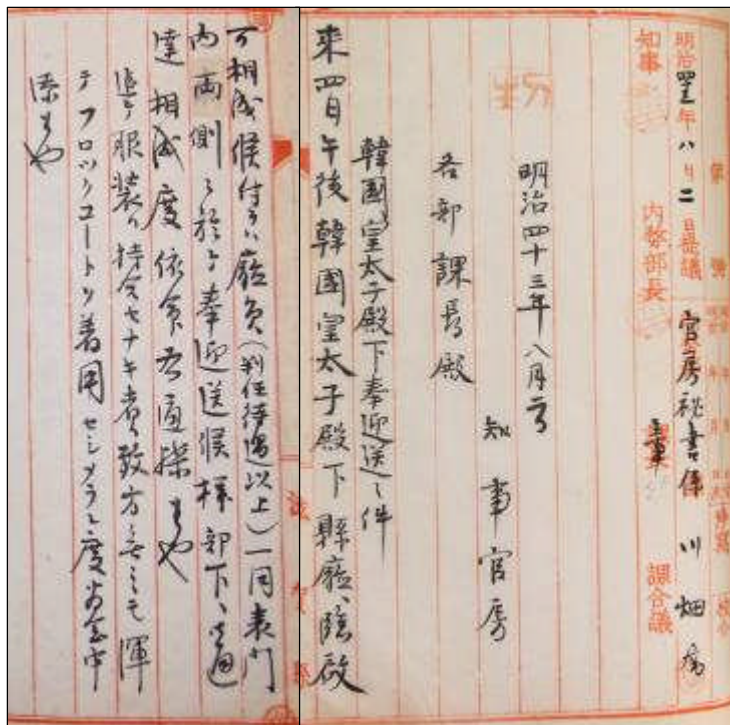 第 號
明治四三年八月二日提議 官房秘書係 川畑
知事 内務部長 課長 課合議
明治四十三年八月二日
知事官房
各部課長殿
韓國皇太子殿下奉迎送之件
来四日午後韓國皇太子殿下縣廰ヘ臨啓
滋賀縣
可相成候付テハ廰員(判任待遇以上)一同表門
内両側ニ於テ奉迎送候様部下ヘ通
達相成度依命右通牒
追テ服装ハ持合セナキ者ハ致方無之モ渾
テフロックコートヲ着用セシメラレ度為念申
添